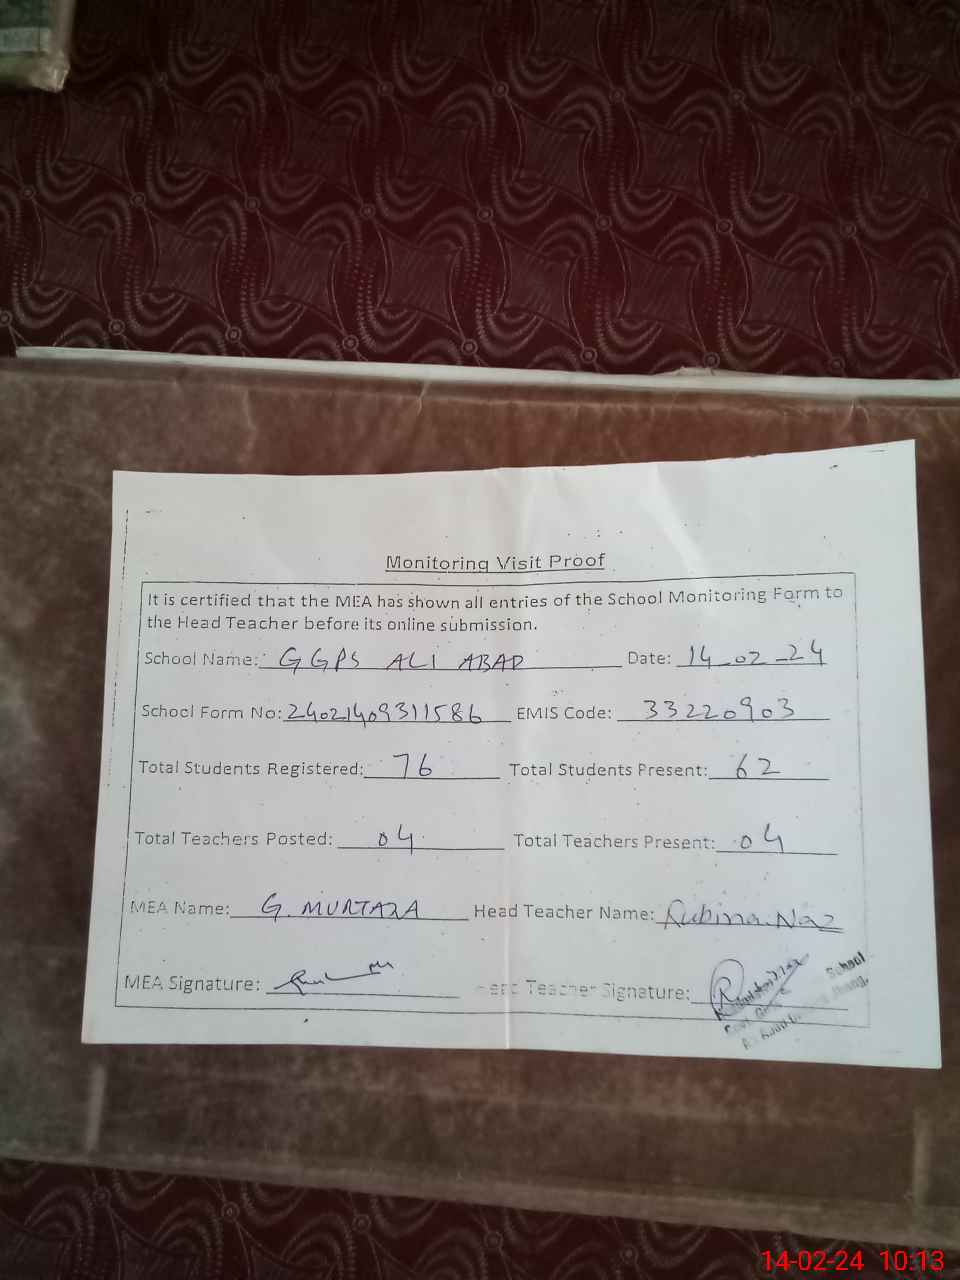 Monitoring Visit Proof
It is certified that the MEA has shown all entries of the School Monitoring Form to
the Head Teacher before its online submission.
School Name: GGPS ALI ABAD Date: 14-02-24
School Form No: 24021409311586 EMIS Code: 33220903
Total Students Registered: 76 Total Students Present: 62
Total Teachers Posted: 04 Total Teachers Present: 04
MEA Name: G. MURTAZA Head Teacher Name: Rubina Naz
MEA Signature: Head Teacher Signature:
School
Jhang.
14-02-24 10:13